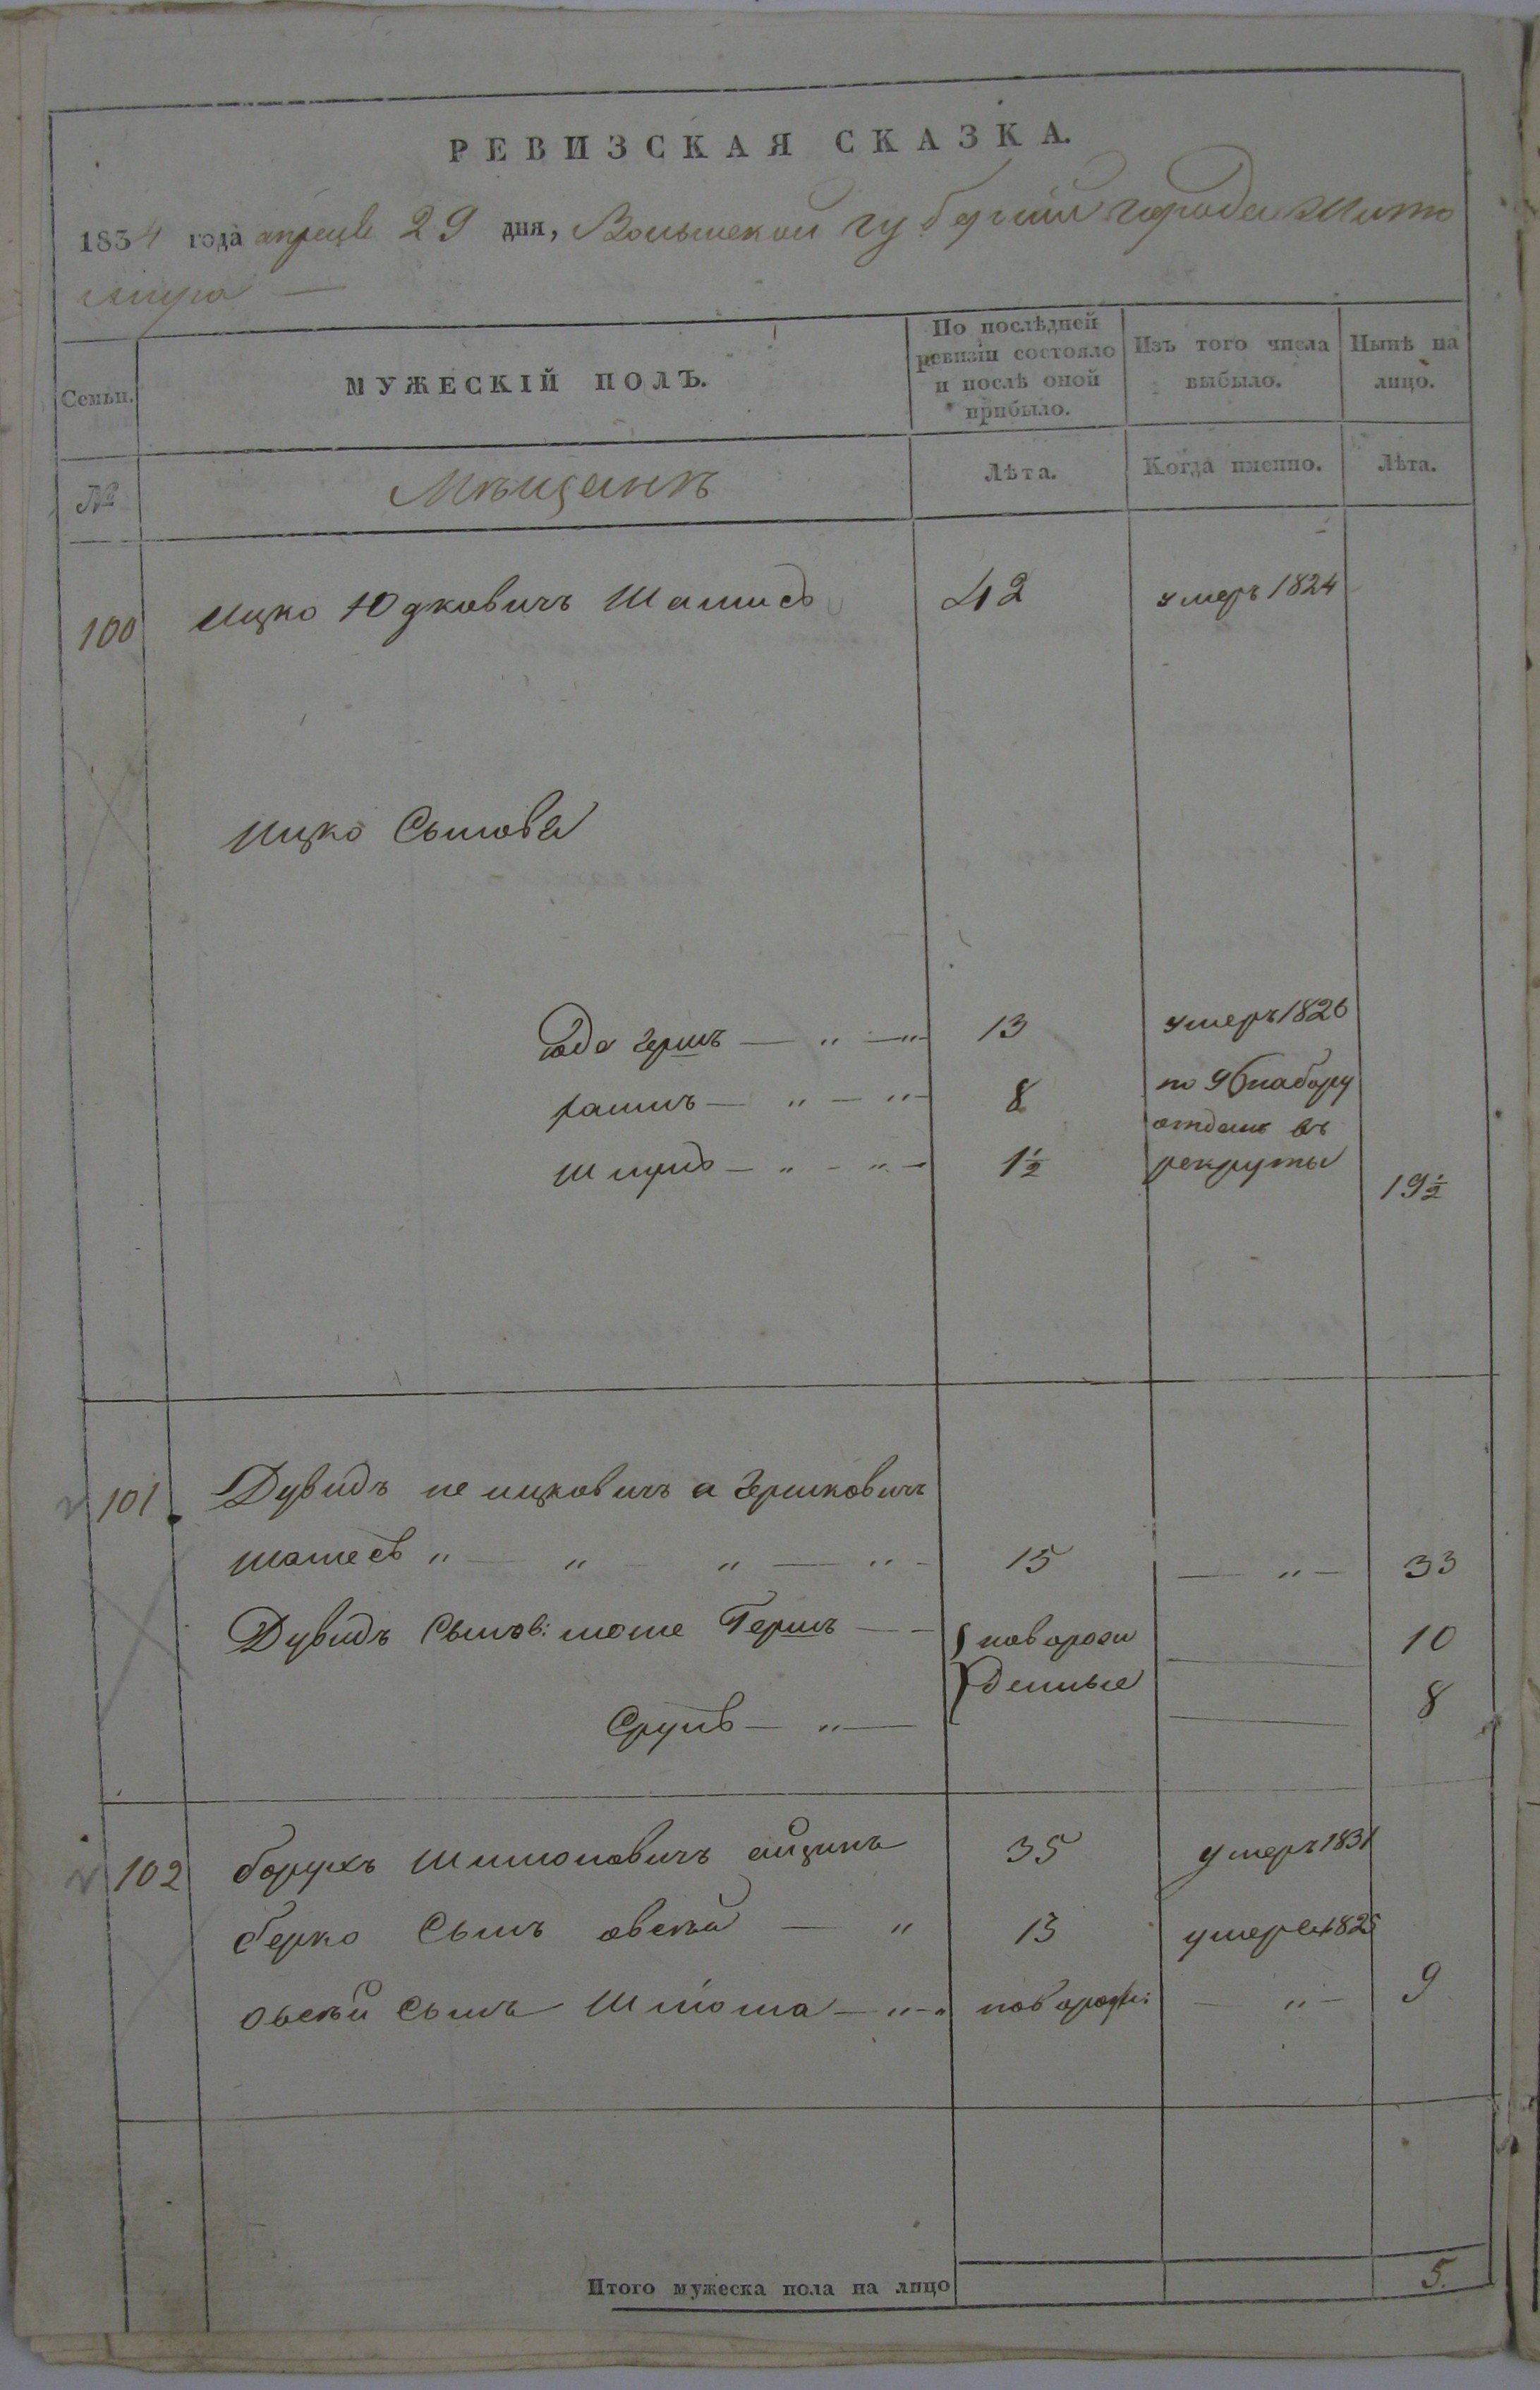 РЕВИЗСКАЯ СКАЗКА.
1834 года апреля 29 дня, Волынской губернии города Жито
мира —
Семьи.
МУЖЕСКІЙ ПОЛЪ.
По послѣдней ревизіи состояло и послѣ оной прибыло.
Изъ того числа выбыло.
Нынѣ на лицо.
№
Мѣщанъ
Лѣта.
Когда имянно.
Лѣта.
100 Ицко Юдковичъ 42 умеръ 1824
Ицко Сыновья
Юда Гершъ — " — " 13 умеръ 1826
— " — " 8 по 96 набору
отданъ въ
— " — " 1½ рекруты
19½
101. Дувидъ не ицковичъ а Гершковичъ
" — " — " — " — 15 — " — 33
Дувидъ Сынов: моше Гершъ — — новорож 10
денные
Сруль — " — 8
102 борухъ Шимоновичъ 35 умеръ 1831
берко Сынъ овсѣй — " 13 умеръ 1825
овсѣй Сынъ — " — " новорож: — " — 9
Итого мужеска пола на лицо 5.